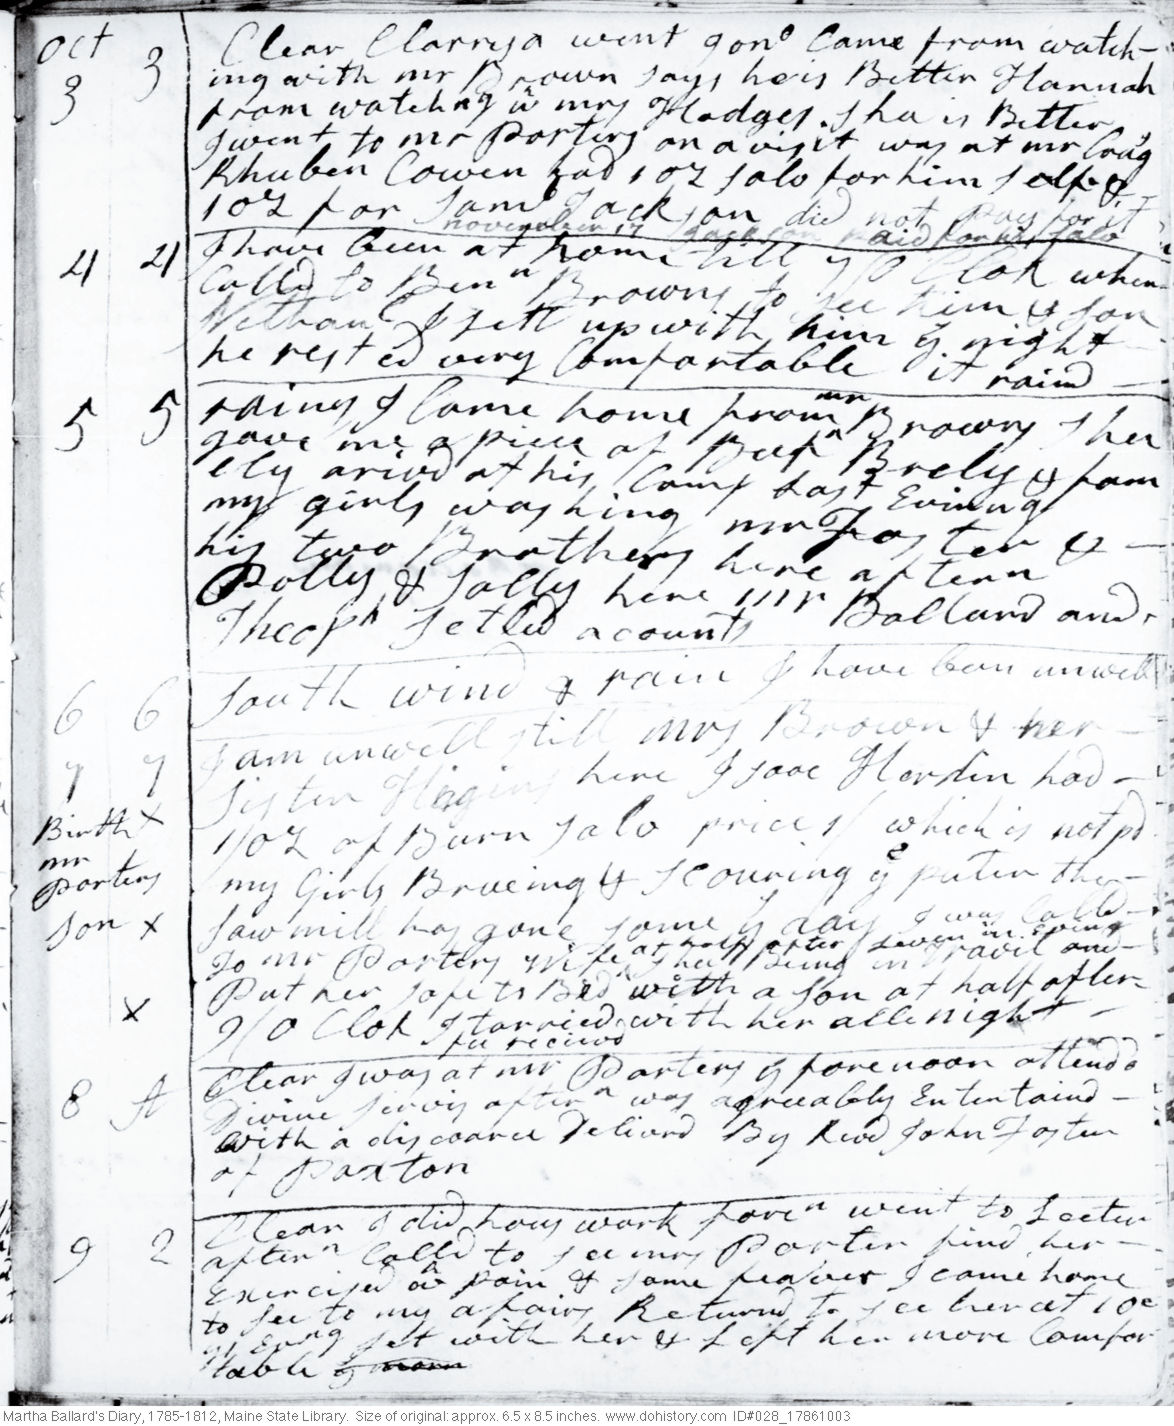 Oct
3 3 Clear Clarrysa went Jonº Came from watch-
ing with mr Brown says he is Better Hannah
from watching wᵗ mrs Hodges. Shee is Better
I went to mr Porters on a visit was at mr Craigˢ
Rhuben Cowen had 1 oz Salo for him Self &
1 oz for Samˡ Jackson did not Pay for it
november 17 Jackson paid for his Salo
4 4 I have been at home till 7 / O Clok when
Calld to Benⁿ Browns to See him & Son
Nethan I sett up with him yᵉ night
he rested very Comfortable it raind
5 5 rainy I Came home from mr Browns Shee
gave me a piece of Beef
ely arivd at his Camp Last Evinng
my girls washing mr Foster &
his two Brothers here aftern
Polly & Sally here mr Ballard and
Theoph Setled acounts
6 6 South wind & rain I have ben unwell
7 7 I am unwell still Mrs Brown & her
Sister Higins here Isaac Hardin had
Birth x 1/oz of Burn Salv price 1/ which is not pᵈ
mr
Porters my Girls Brueing & Scouring yᵉ puter the
Son x Sawmill has gone some yˢ day I was Calld
to mr Porters wife at half after Seven in Evng Shee Being in Travil and
Put her safe to Bed with a Son at half after
x 9 / O Clok I tarried with her all night
fee recievd
8 A Clear I was at mr Porters yᵉ forenoon attendᵈ
Divine Servis afterⁿ was agreeably Entertaind
with a discource Delivrd By Revd John Foster
of Paxton
9 2 Clear I did hous work foreⁿ went to Lecter
afterⁿ Calld to See mrs Porter find her
Exercised wᵗ pain & some feaver I came home
to See to my afairs Returnd to See her at 10
Evng Set with her & Left her more Comfor
table
Martha Ballard's Diary, 1785-1812, Maine State Library. Size of original: approx. 6.5 x 8.5 inches. www.dohistory.com ID#028_17861003